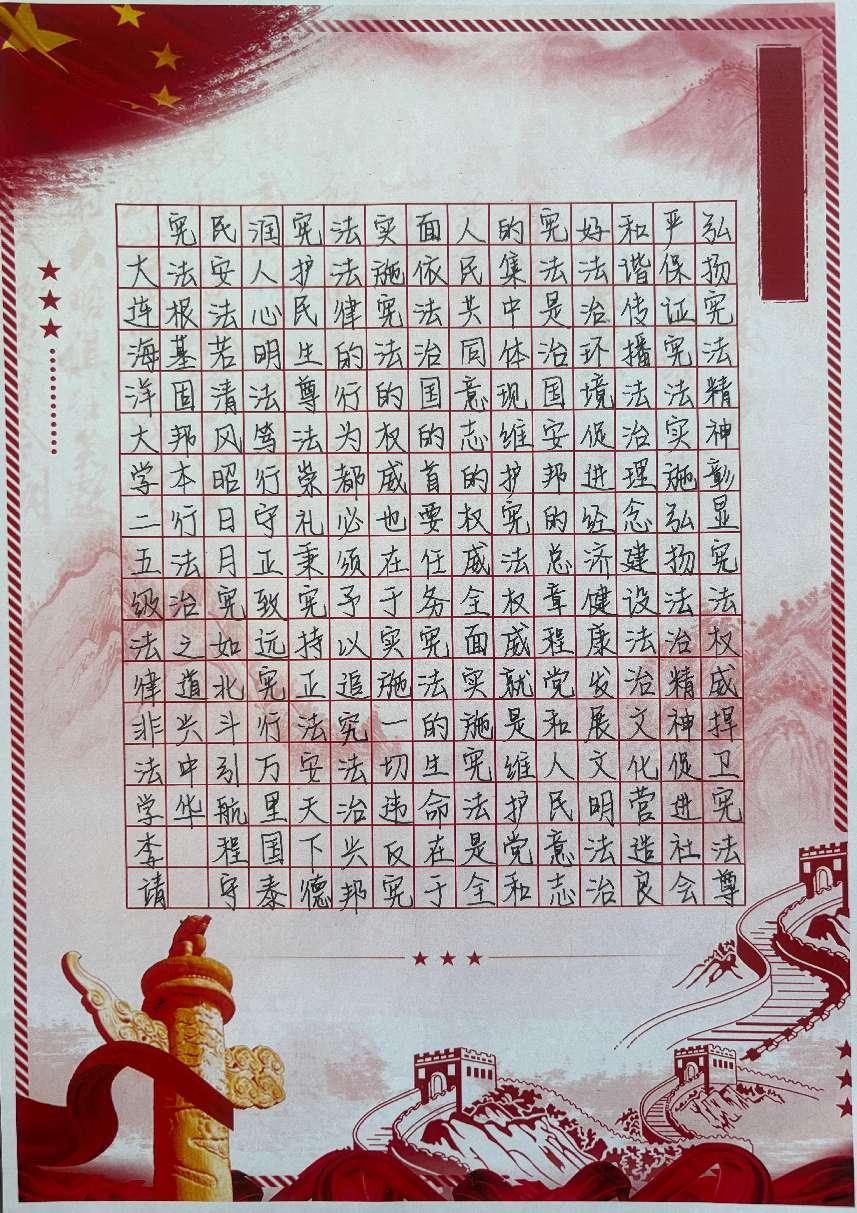 弘扬宪法精神彰显宪法权威捍卫宪法尊
严保证宪法实施弘扬法治精神促进社会
和谐传播法治理念建设法治文化营造良
好法治环境促进经济健康发展文明法治
宪法是治国安邦的总章程党和人民意志
的集中体现维护宪法权威就是维护党和
人民共同意志的权威全面实施宪法是全
面依法治国的首要任务宪法的生命在于
实施宪法的权威也在于实施一切违反宪
法法律的行为都必须予以追究法治兴邦
宪护民生尊法崇礼秉宪持正法安天下德
润人心明法笃行守正致远宪行万里国泰
民安法若清风昭日月宪如北斗引航程守
宪法根基固邦本行法治之道兴中华
大连海洋大学二五级法律非法学李请